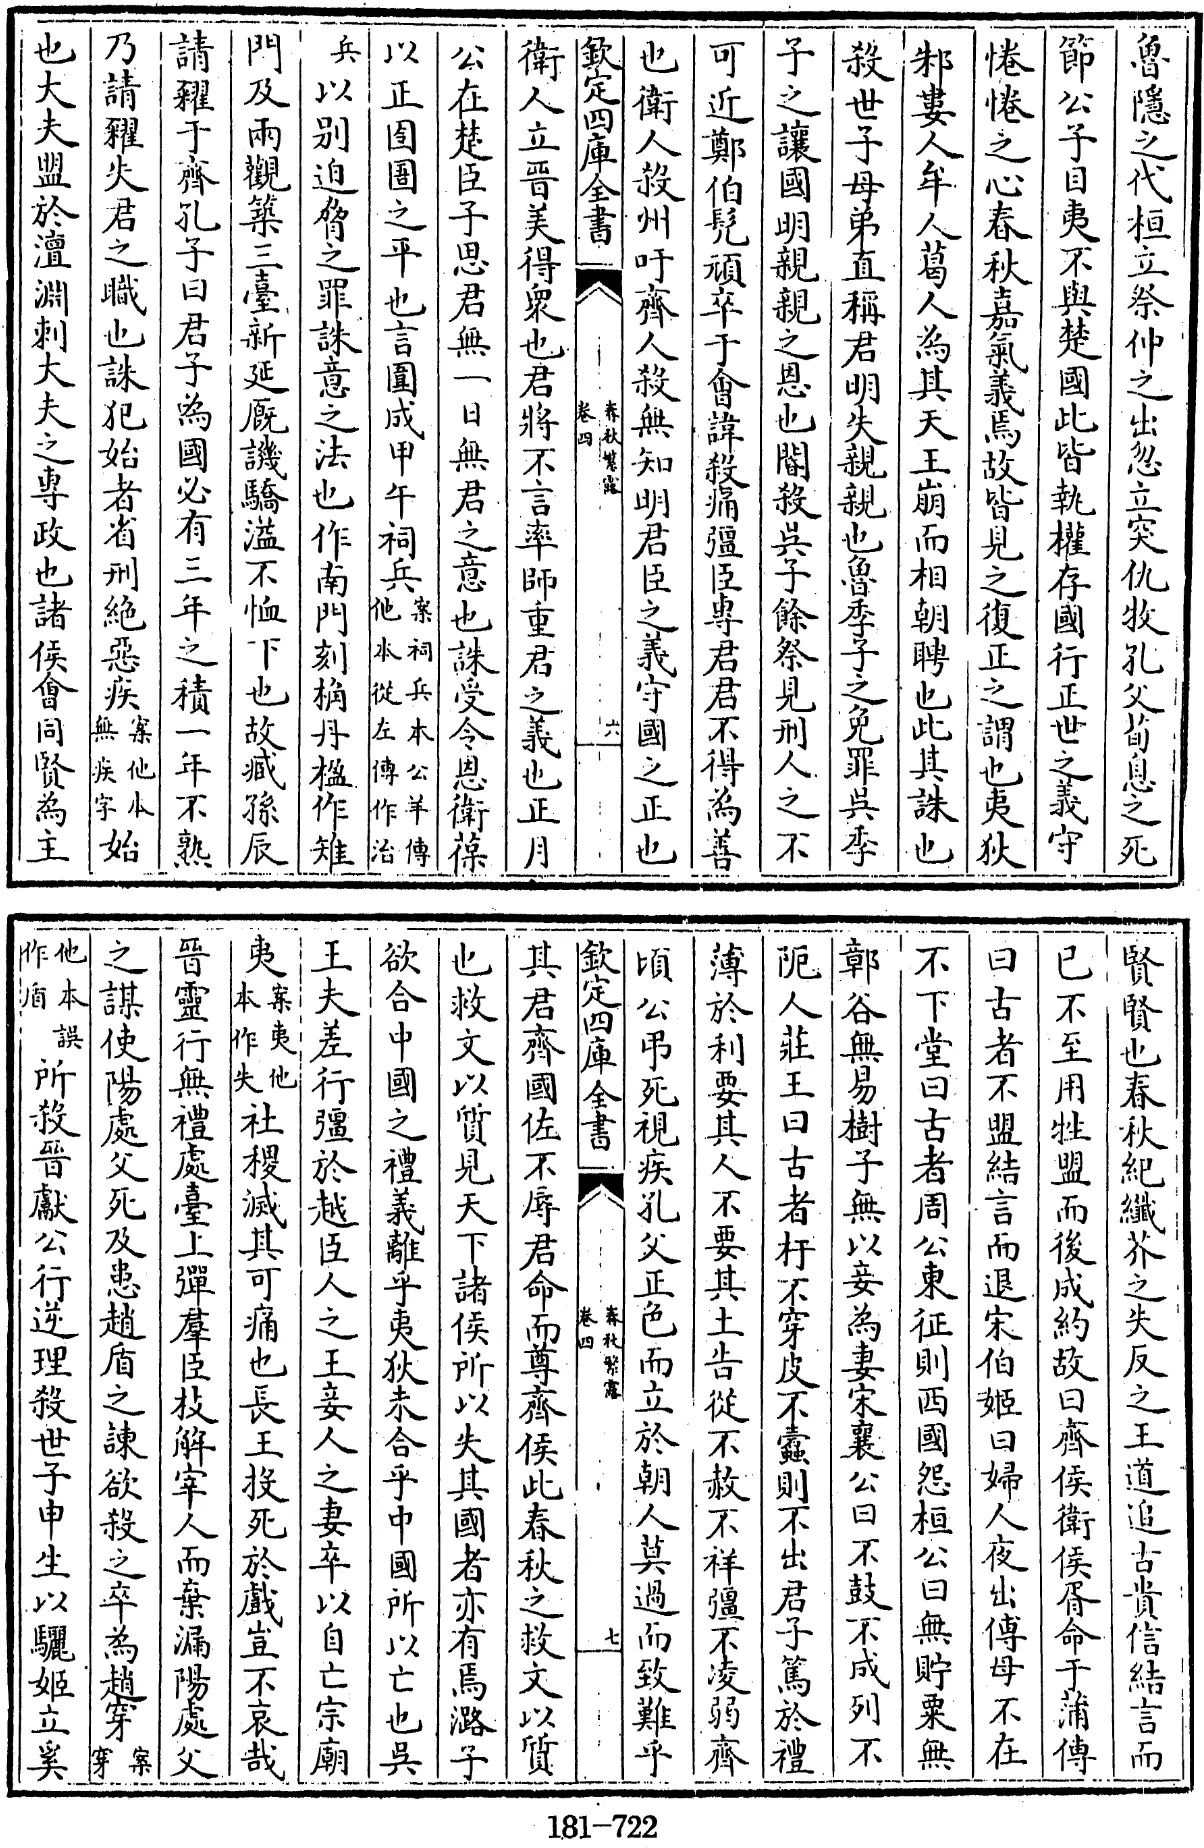 魯隱之代桓立祭仲之出忽立突仇牧孔父荀息之死
節公子目夷不與楚國此皆執權存國行正世之義守
惓惓之心春秋嘉氣義焉故皆見之復正之謂也夷狄
邾婁人牟人葛人為其天王崩而相朝聘也此其誅也
殺世子母弟直稱君明失親親也魯季子之免罪吳季
子之讓國明親親之恩也閽殺吳子餘祭見刑人之不
可近鄭伯髡頑卒于會諱殺痛彊臣專君君不得為善
也衛人殺州吁齊人殺無知明君臣之義守國之正也
欽定四庫全書 春秋繁露 卷四 六
衛人立晉美得衆也君將不言率師重君之義也正月
公在楚臣子思君無一日無君之意也誅受令恩衛葆
以正囹圄之平也言圍成甲午祠兵案祠兵本公羊傳他本從左傳作治
兵以别迫脅之罪誅意之法也作南門刻桷丹楹作雉
門及兩觀築三臺新延廐譏驕溢不恤下也故臧孫辰
請糴于齊孔子曰君子為國必有三年之積一年不熟
乃請糴失君之職也誅犯始者省刑絶惡疾案他本無疾字始
也大夫盟於澶淵刺大夫之專政也諸侯會同賢為主
賢賢也春秋紀纖芥之失反之王道追古貴信結言而
已不至用牲盟而後成約故曰齊侯衛侯胥命于蒲傳
曰古者不盟結言而退宋伯姬曰婦人夜出傅母不在
不下堂曰古者周公東征則西國怨桓公曰無貯粟無
鄣谷無易樹子無以妾為妻宋襄公曰不鼓不成列不
阨人莊王曰古者杅不穿皮不蠹則不出君子篤於禮
薄於利要其人不要其土告從不赦不祥彊不凌弱齊
頃公弔死視疾孔父正色而立於朝人莫過而致難乎
欽定四庫全書 春秋繁露 卷四 七
其君齊國佐不辱君命而尊齊侯此春秋之救文以質
也救文以質見天下諸侯所以失其國者亦有焉潞子
欲合中國之禮義離乎夷狄未合乎中國所以亡也吳
王夫差行彊於越臣人之王妾人之妻卒以自亡宗廟
夷案夷他本作失社稷滅其可痛也長王投死於戲豈不哀哉
晉靈行無禮處臺上彈羣臣枝解宰人而棄漏陽處父
之謀使陽處父死及患趙盾之諫欲殺之卒為趙穿案穿
他本誤作盾所殺晉獻公行逆理殺世子申生以驪姬立奚
181-722